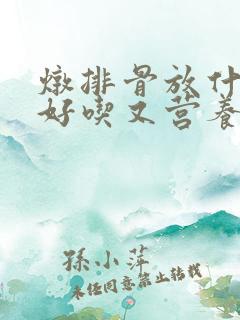 燉排骨放什
好喫又营养
孫小萍
未经同意禁止转载